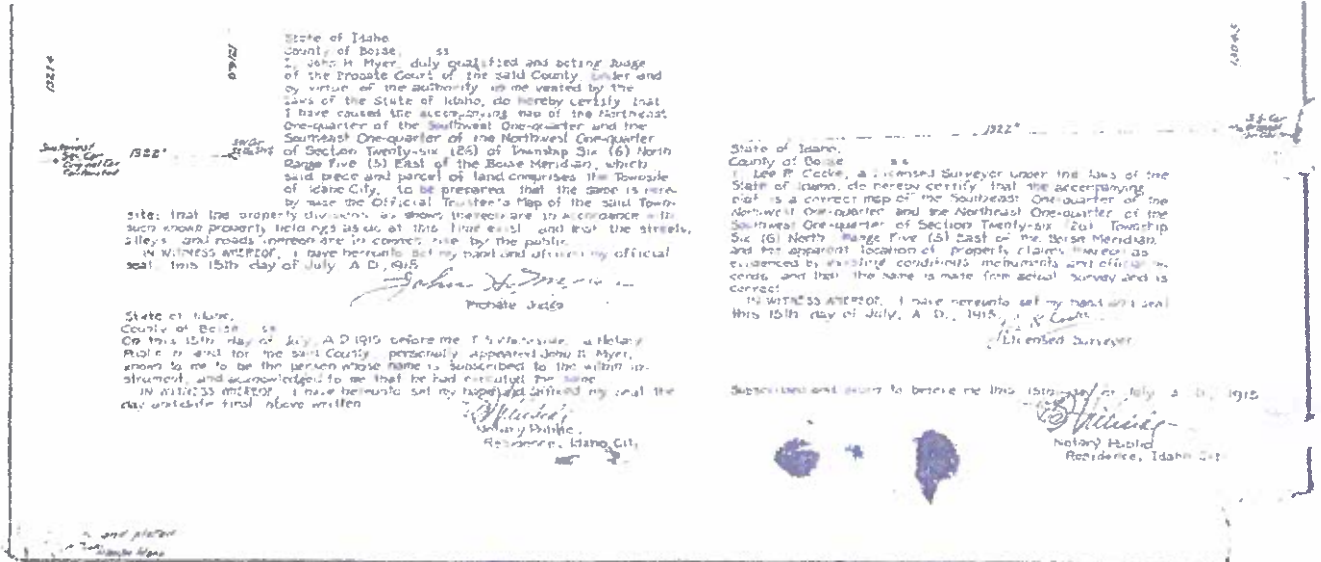 State of Idaho
County of Boise, ss
I, John H. Myer, duly qualified and acting Judge
of the Probate Court of the said County, under and
by virtue of the authority in me vested by the
laws of the State of Idaho, do hereby certify that
I have caused the accompanying map of the Northeast
One-quarter of the Southwest One-quarter and the
Southeast One-quarter of the Northwest One-quarter
of Section Twenty-six (26) of Township Six (6) North
Range Five (5) East of the Boise Meridian, which
said piece and parcel of land comprises the Townsite
of Idaho City, to be prepared, that the same is here-
by made the Official Trustee's Map of the said Town-
site; that the property divisions as shown thereon are in accordance with
such known property holdings as do at this time exist and that the streets,
alleys and roads thereon are in common use by the public.
IN WITNESS WHEREOF, I have hereunto set my hand and affixed my official
seal, this 15th day of July A.D., 1915
John H. Myer
Probate Judge
State of Idaho,
County of Boise ss
On this 15th day of July, A.D. 1915 before me, a Notary
Public in and for the said County, personally appeared John H. Myer,
known to me to be the person whose name is subscribed to the within in-
strument, and acknowledged to me that he had executed the same
IN WITNESS WHEREOF, I have hereunto set my hand and affixed my seal the
day and date first above written
Notary Public,
Residence, Idaho City
1322'
1322'
State of Idaho,
County of Boise ss
I, Lee R. Cooke, a Licensed Surveyor under the laws of the
State of Idaho, do hereby certify that the accompanying
plat is a correct map of the Southeast One-quarter of the
Northwest One-quarter and the Northeast One-quarter of the
Southwest One-quarter of Section Twenty-six (26) Township
Six (6) North Range Five (5) East of the Boise Meridian,
and the apparent location of property claims thereon as
evidenced by existing conditions, monuments and official re-
cords, and that the same is made from actual survey and is
correct
IN WITNESS WHEREOF, I have hereunto set my hand and seal
this 15th day of July, A. D., 1915.
Licensed Surveyor
Subscribed and sworn to before me this 15th day of July A. D., 1915
Notary Public
Residence, Idaho City